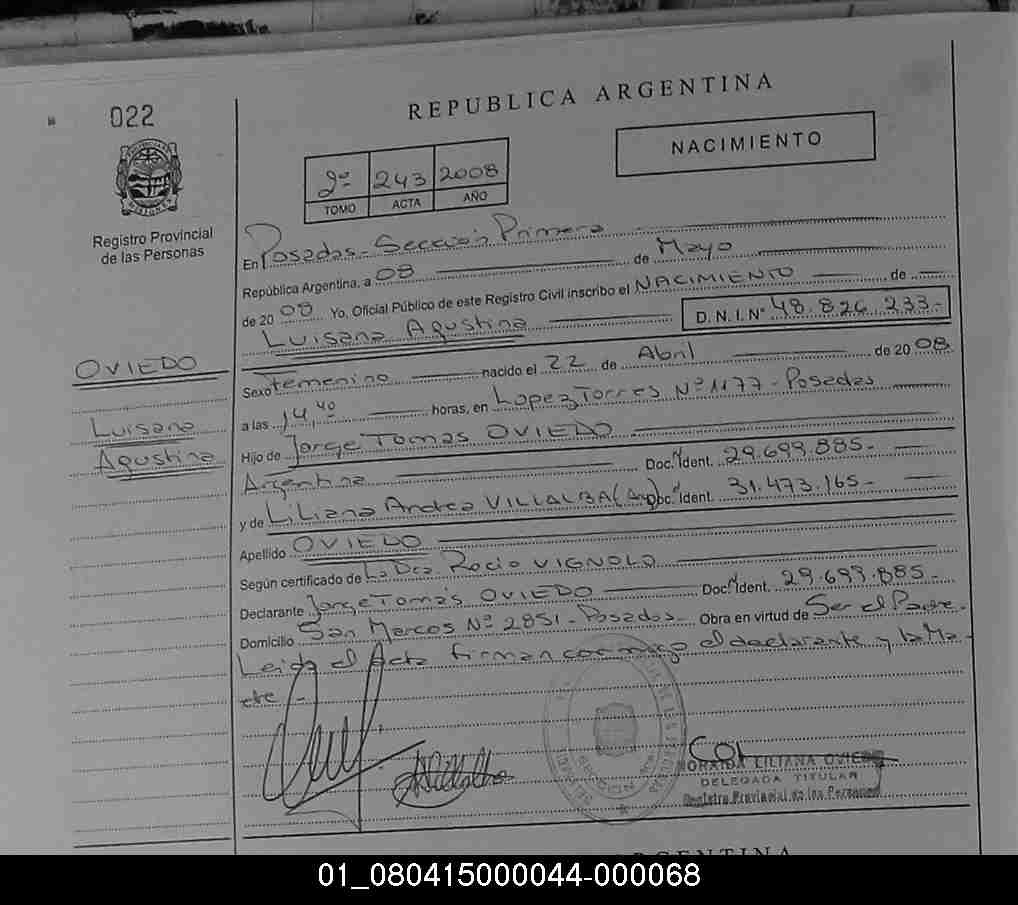 022
REPUBLICA ARGENTINA
NACIMIENTO
2º 243 2008
TOMO ACTA AÑO
Registro Provincial
de las Personas
En Posadas - Sección Primera
República Argentina, a 08 de Mayo
de 20 08 Yo, Oficial Público de este Registro Civil inscribo el NACIMIENTO de
Luisana Agustina D. N. I. Nº 48.826.233-
OVIEDO
Luisana
Agustina
Sexo femenino nacido el 22 de Abril de 20 08
a las 14,40 horas, en Lopez Torres Nº 1177 - Posadas
Hijo de Jorge Tomas OVIEDO
Argentina Doc. Ident. 29.699.885-
y de Liliana Andrea VILLALBA (Arg) Doc. Ident. 31.473.165-
Apellido OVIEDO
Según certificado de La Dra. Rocio VIGNOLO
Declarante Jorge Tomas OVIEDO Doc. Ident. 29.699.885-
Domicilio San Marcos Nº 2851 - Posadas - Obra en virtud de Ser el Padre -
Leida el Acta firman conmigo el declarante y la Ma-
dre -
LILIANA OVIEDO
DELEGADA TITULAR
Registro Provincial de las Personas
ARGENTINA
01_080415000044-000068